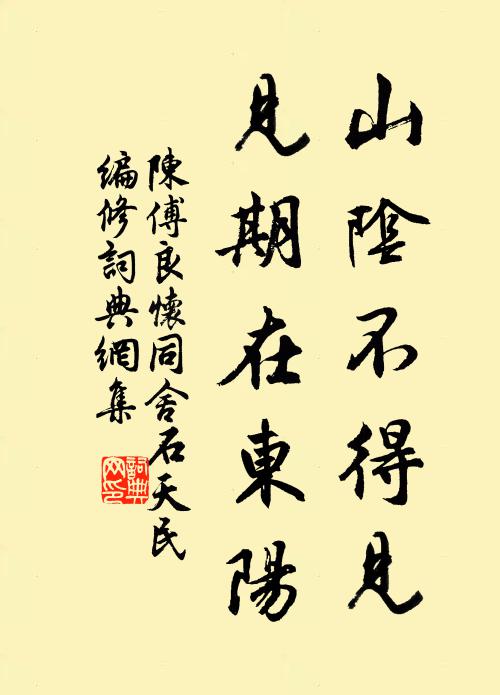 山陰不得見
見期在東陽
陳傅良懷同舍石天民
編修詞典網集
詞典
网印